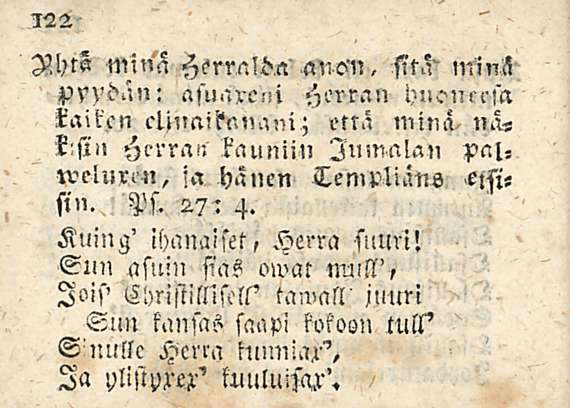 122
Yhtä minä Herralda anon, sitä minä
pyydän: asuaxeni Herran huonessa
kaiken elinaikanani; että minä nä⸗
kisin Herran kauniin Jumalan pal⸗
weluxen, ja hänen Templiäns etsi⸗
sin. Ps. 27: 4.
Kuing' ihanaiset, Herra suuri!
Sun asuin sias owat mull',
Jois' Christillisell' tawall' juuri
Sun kansas saapi kokoon tull'
Sinulle Herra kunniax',
Ja ylistyxex' kuuluisax'.